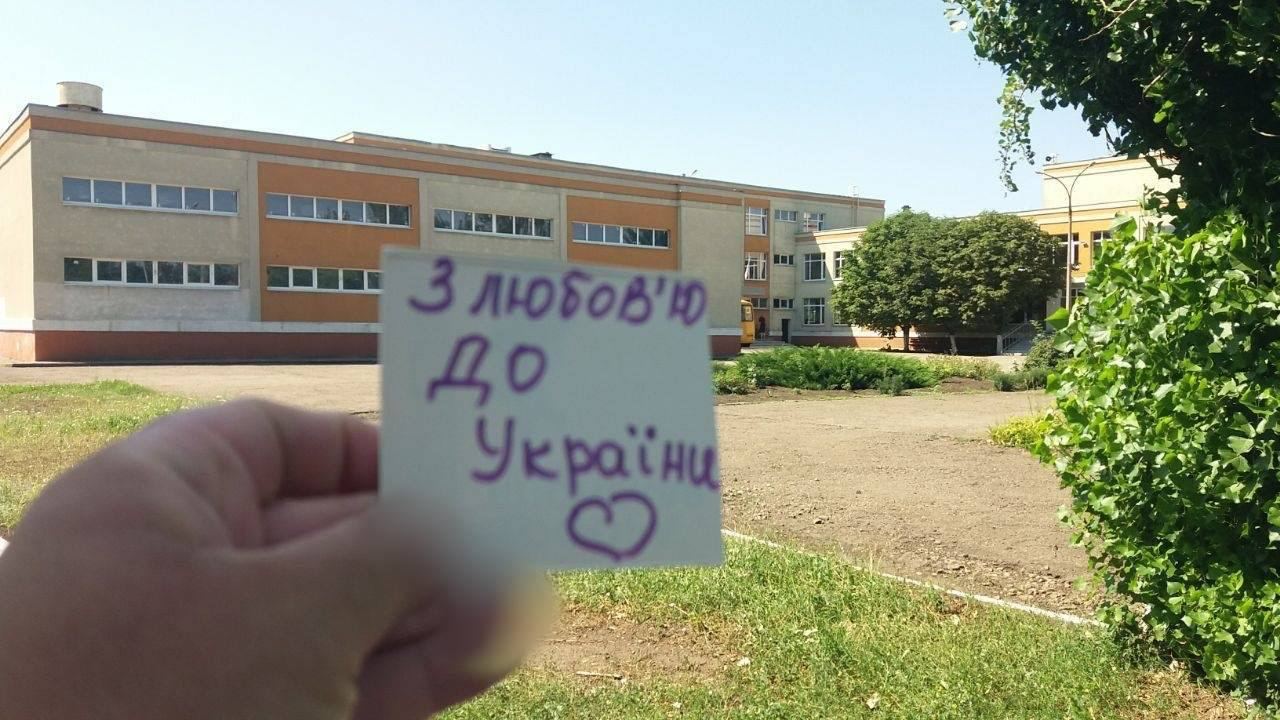 З любов'ю
до
України